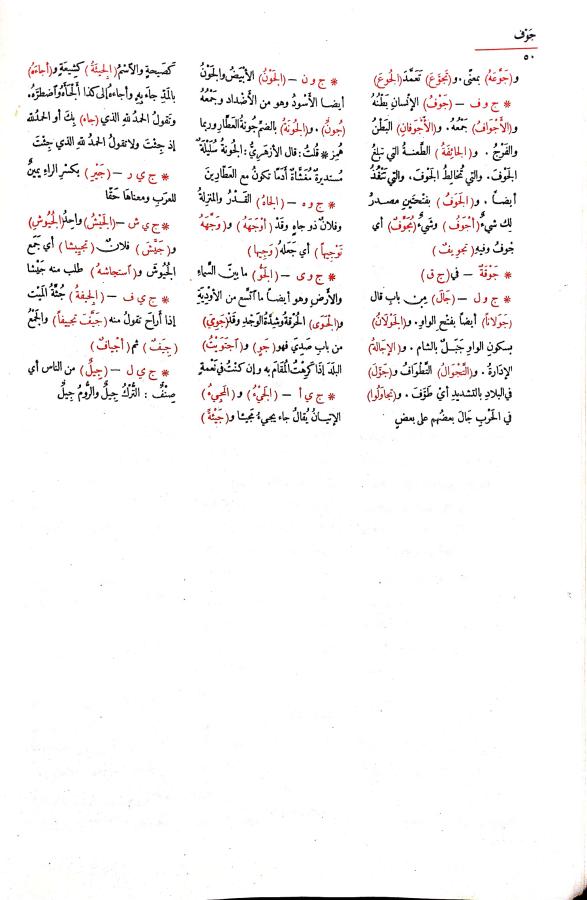 جَوْف
٥٠
و(جَوَّعَهُ) بمعنًى. و(تَجَوَّعَ) تَعَمَّدَ (الجُوعَ)
* ج و ف – (جَوْفُ) الإنسانِ بَطْنُهُ
و(الأَجْوافُ) جَمْعُهُ. و(الأَجْوَفانِ) البَطْنُ
والفَرْجُ. و(الجائِفَةُ) الطَّعنةُ التي تبلغُ
الجَوْفَ. والتي تُخالِطُ الجَوْفَ. والتي تَنْفُذُ
أيضاً. و(الجَوَفُ) بفتحَتينِ مصدرُ
لك شيءٌ (أَجْوَفُ) وشيءٌ (مُجَوَّفٌ) أي
جُوفُ وفيهِ (تجويفٌ)
* جَوْقَةٌ – في (ج ق)
* ج و ل – (جالَ) من باب قال
(جَوَلاناً) أيضاً بفتحِ الواوِ. و(الجَوْلانُ)
بسكونِ الواوِ جَبَلٌ بالشَّامِ. و(الإجالةُ)
الإدارةُ. و(التَّجْوالُ) التَّطْوافُ و(جَوَّلَ)
في البلادِ بالتشديدِ أيْ طَوَّفَ. و(تجاوَلُوا)
في الحَرْبِ جَالَ بعضُهم على بعضٍ
* ج و ن – (الجَوْنُ) الأبيضُ والجَوْنُ
أيضاً الأَسودُ وهو من الأَضداد وجمعُهُ
(جُونٌ). و(الجُونَةُ) بالضمِّ جُونةُ العَطَّارِ وربما
هُمِزَ * قلتُ: قال الأزهريُّ: الجُونةُ سُلَيْلَةٌ
مُستديرةٌ مُغَشَّاةٌ أَدَماً تكون مع العَطَّارينَ
* ج و ه – (الجاهُ) القَدْرُ والمنزلةُ
وفلانٌ ذو جاهٍ وقَدْ (أَوْجَهَهُ) و(وَجَّهَهُ
تَوْجيهاً) أي جَعلهُ (وَجيهاً)
* ج و ى – (الجَوُّ) ما بينَ السَّماءِ
والأرضِ وهو أيضاً ما اتَّسع من الأوْدِيةِ
و(الجَوَى) الحُرْقةُ وشِدَّةُ الوَجْدِ وقد (جَوِيَ)
من باب صَدِيَ فهو (جَوٍ) و(اجتَوَيْتُ)
البلدَ إذا كَرِهْتَ المُقامَ به وإن كنتَ في نعمةٍ
* ج ي أ – (المجيْءُ) و(المجيءُ)
الإتيانُ يُقالُ جاء يجيءُ مجيئا و(جَيْئَةً)
كصَيحةٍ والاسمُ (الجِيئَةُ) كشِيعَةٍ و(أجاءَهُ)
بالمَدِّ جاءَ بهِ وأجاءهُ إلى كذا أَلْجَأَهُ واضطرَّهُ.
وتَقولُ الحمدُ للهِ الذي (جاء) بِكَ أو الحمدُ للهِ
إذ جِئْتَ ولا تقولُ الحمدُ للهِ الذي جِئْتَ
* ج ي ر – (جَيْرِ) بكسْرِ الراءِ يمينٌ
للعرَبِ ومعناها حَقًّا
* ج ي ش – (الجَيْشُ) واحِدُ (الجُيوشِ)
و(جَيَّشَ) فلانٌ (تَجْييشا) أي جَمَع
الجُيُوشَ و(استَجاشهُ) طلب منه جَيْشا
* ج ي ف – (الجِيفةُ) جُثَّةُ المَيْتِ
إذا أراحَ تقولُ منه (جَيَّفَ تجييفاً) والجَمعُ
(جِيَفٌ) ثم (أجْيافٌ)
* ج ي ل – (جِيلٌ) من الناسِ أي
صِنْفٌ: التُّركُ جِيلٌ والرُّومُ جِيلٌ